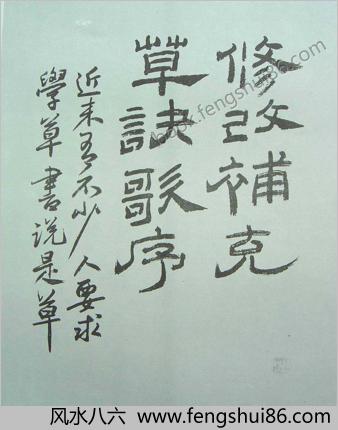 修改補充
草訣歌序
近来有不少人要求
學草書说是草
book.fengshui86.com
风水八六 www.fengshui86.com